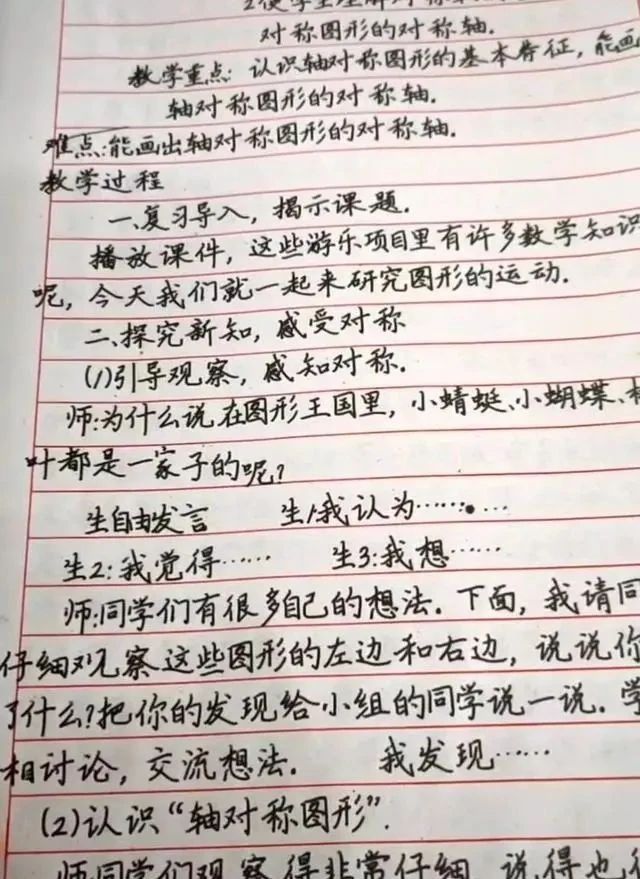 对称图形的对称轴.
教学重点: 认识轴对称图形的基本特征, 能画
轴对称图形的对称轴.
难点:能画出轴对称图形的对称轴.
教学过程
一、复习导入, 揭示课题.
播放课件, 这些游乐项目里有许多数学知识
呢, 今天我们就一起来研究图形的运动.
二、探究新知, 感受对称
(1)引导观察, 感知对称.
师:为什么说在图形王国里, 小蜻蜓、小蝴蝶、
叶都是一家子的呢?
生自由发言 生1:我认为……
生2:我觉得…… 生3:我想……
师:同学们有很多自己的想法. 下面, 我请同
仔细观察这些图形的左边和右边, 说说你
了什么?把你的发现给小组的同学说一说. 学
相讨论, 交流想法. 我发现……
(2)认识“轴对称图形”.
师:同学们观察得非常仔细, 说得也很